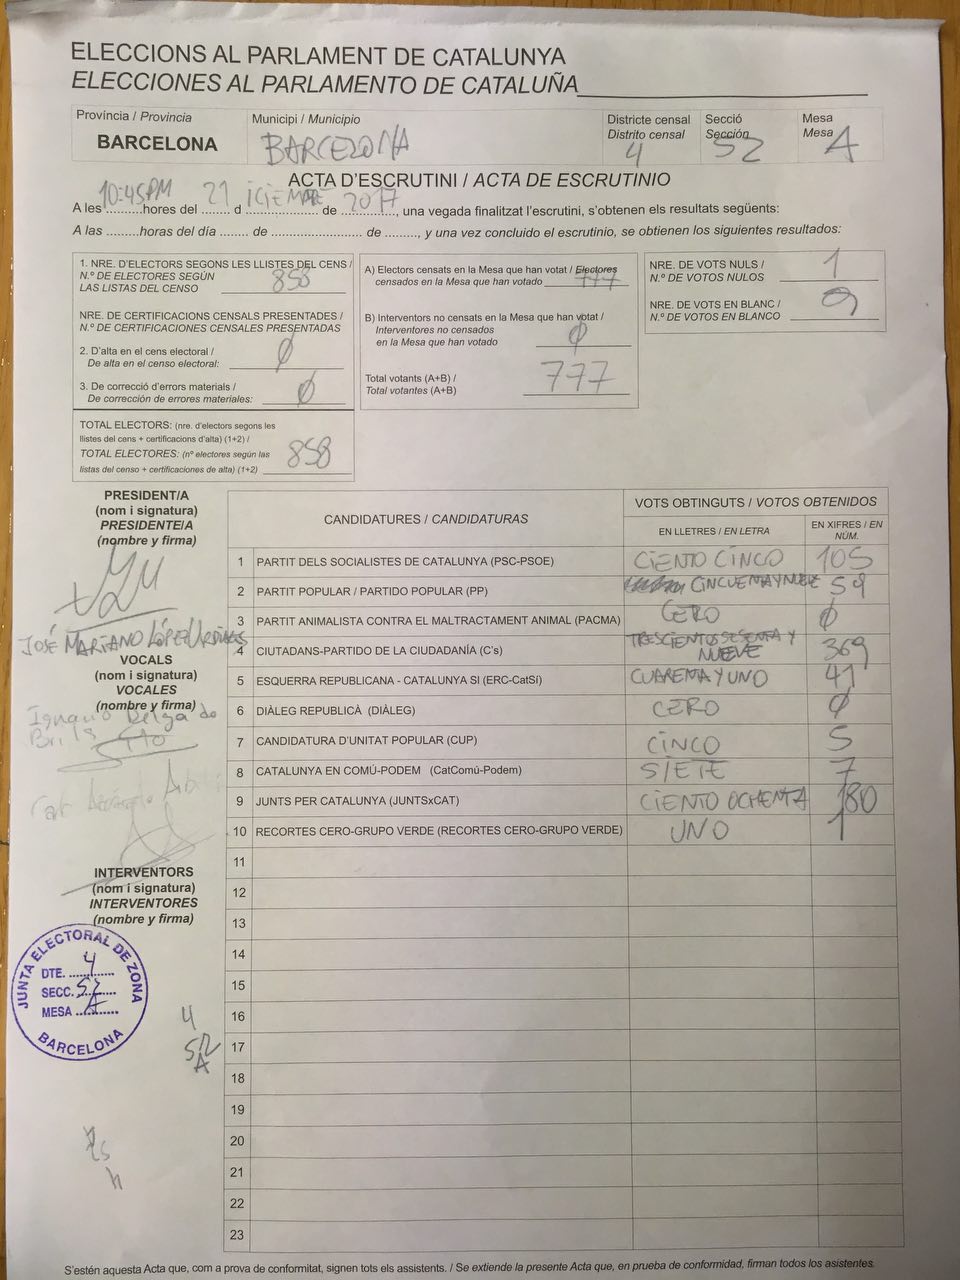 ELECCIONS AL PARLAMENT DE CATALUNYA
ELECCIONES AL PARLAMENTO DE CATALUÑA
Província / Provincia
BARCELONA
Municipi / Municipio
BARCELONA
Districte censal
Distrito censal
4
Secció
Sección
52
Mesa
Mesa
A
ACTA D'ESCRUTINI / ACTA DE ESCRUTINIO
A les 10:45PM hores del 21 d iCIEMBRE de 2017, una vegada finalitzat l'escrutini, s'obtenen els resultats següents:
A las .........horas del día ........ de .................... de ........., y una vez concluido el escrutinio, se obtienen los siguientes resultados:
1. NRE. D'ELECTORS SEGONS LES LLISTES DEL CENS /
N.º DE ELECTORES SEGÚN
LAS LISTAS DEL CENSO 858
NRE. DE CERTIFICACIONS CENSALS PRESENTADES /
N.º DE CERTIFICACIONES CENSALES PRESENTADAS
2. D'alta en el cens electoral /
De alta en el censo electoral: 0
3. De correcció d'errors materials /
De corrección de errores materiales: 0
TOTAL ELECTORS: (nre. d'electors segons les
llistes del cens + certificacions d'alta) (1+2) /
TOTAL ELECTORES: (nº electores según las
listas del censo + certificaciones de alta) (1+2) 858
A) Electors censats en la Mesa que han votat / Electores
censados en la Mesa que han votado 777
B) Interventors no censats en la Mesa que han votat /
Interventores no censados
en la Mesa que han votado 0
Total votants (A+B) /
Total votantes (A+B) 777
NRE. DE VOTS NULS /
N.º DE VOTOS NULOS 1
NRE. DE VOTS EN BLANC /
N.º DE VOTOS EN BLANCO 9
PRESIDENT/A
(nom i signatura)
PRESIDENTE/A
(nombre y firma)
JOSÉ MARIANO LÓPEZ
VOCALS
(nom i signatura)
VOCALES
(nombre y firma)
Ignacio Delgado
INTERVENTORS
(nom i signatura)
INTERVENTORES
(nombre y firma)
JUNTA ELECTORAL DE ZONA
DTE. 4
SECC. 52
MESA A
BARCELONA
4
52
A
CANDIDATURES / CANDIDATURAS
VOTS OBTINGUTS / VOTOS OBTENIDOS
EN LLETRES / EN LETRA
EN XIFRES / EN NÚM.
1 PARTIT DELS SOCIALISTES DE CATALUNYA (PSC-PSOE) CIENTO CINCO 105
2 PARTIT POPULAR / PARTIDO POPULAR (PP) CINCUENTAYNUEVE 59
3 PARTIT ANIMALISTA CONTRA EL MALTRACTAMENT ANIMAL (PACMA) CERO 0
4 CIUTADANS-PARTIDO DE LA CIUDADANÍA (C's) TRESCIENTOS SESENTA Y NUEVE 369
5 ESQUERRA REPUBLICANA - CATALUNYA SI (ERC-CatSí) CUARENTA Y UNO 41
6 DIÀLEG REPUBLICÀ (DIÀLEG) CERO 0
7 CANDIDATURA D'UNITAT POPULAR (CUP) CINCO 5
8 CATALUNYA EN COMÚ-PODEM (CatComú-Podem) SIETE 7
9 JUNTS PER CATALUNYA (JUNTSxCAT) CIENTO OCHENTA 180
10 RECORTES CERO-GRUPO VERDE (RECORTES CERO-GRUPO VERDE) UNO 1
11
12
13
14
15
16
17
18
19
20
21
22
23
S'estén aquesta Acta que, com a prova de conformitat, signen tots els assistents. / Se extiende la presente Acta que, en prueba de conformidad, firman todos los asistentes.